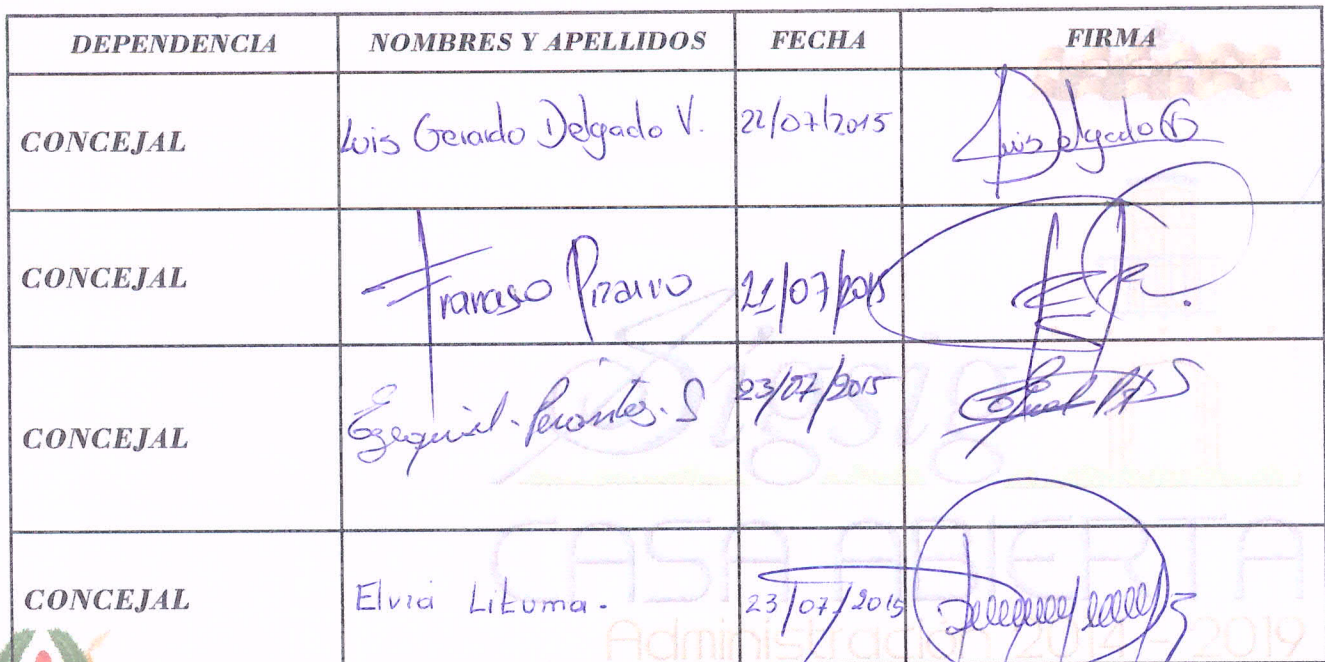 DEPENDENCIA NOMBRES Y APELLIDOS FECHA FIRMA
CONCEJAL Luis Gerardo Delgado V. 22/07/2015 Luis Delgado
CONCEJAL 21/07/2015
CONCEJAL Ezequiel 23/07/2015
CONCEJAL Elvia Lituma. 23/07/2015
Sigsig
CASA ABIERTA
Administración 2014 - 2019